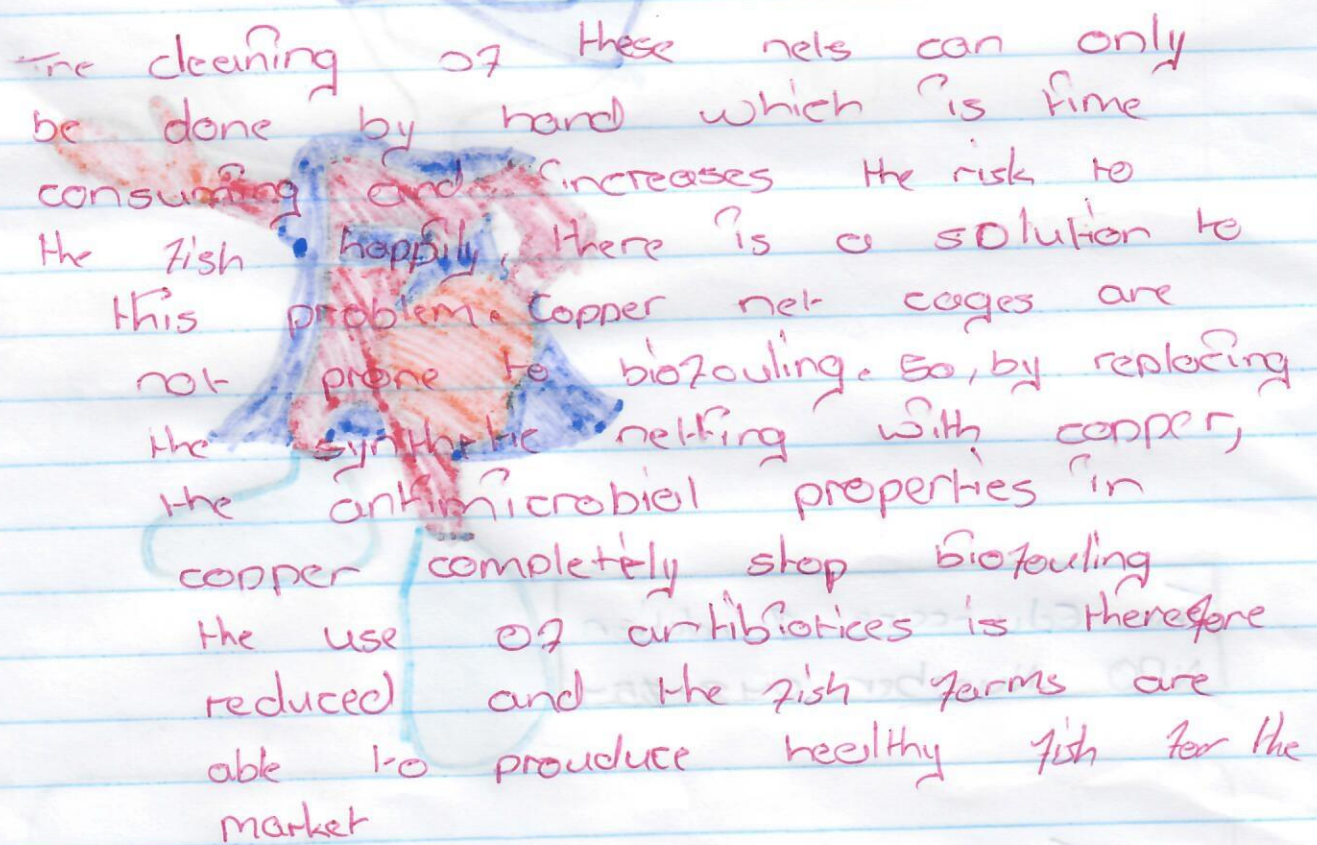 The cleaning of these nets can only
be done by hand which is time
consuming and increases the risk to
the fish. happily, there is a solution to
this problem. Copper net cages are
not prone to biofouling. So, by replacing
the synthetic netting with copper,
the antimicrobial properties in
copper completely stop biofouling
the use of antibiotices is therefore
reduced and the fish farms are
able to prouduce healthy fish for the
market